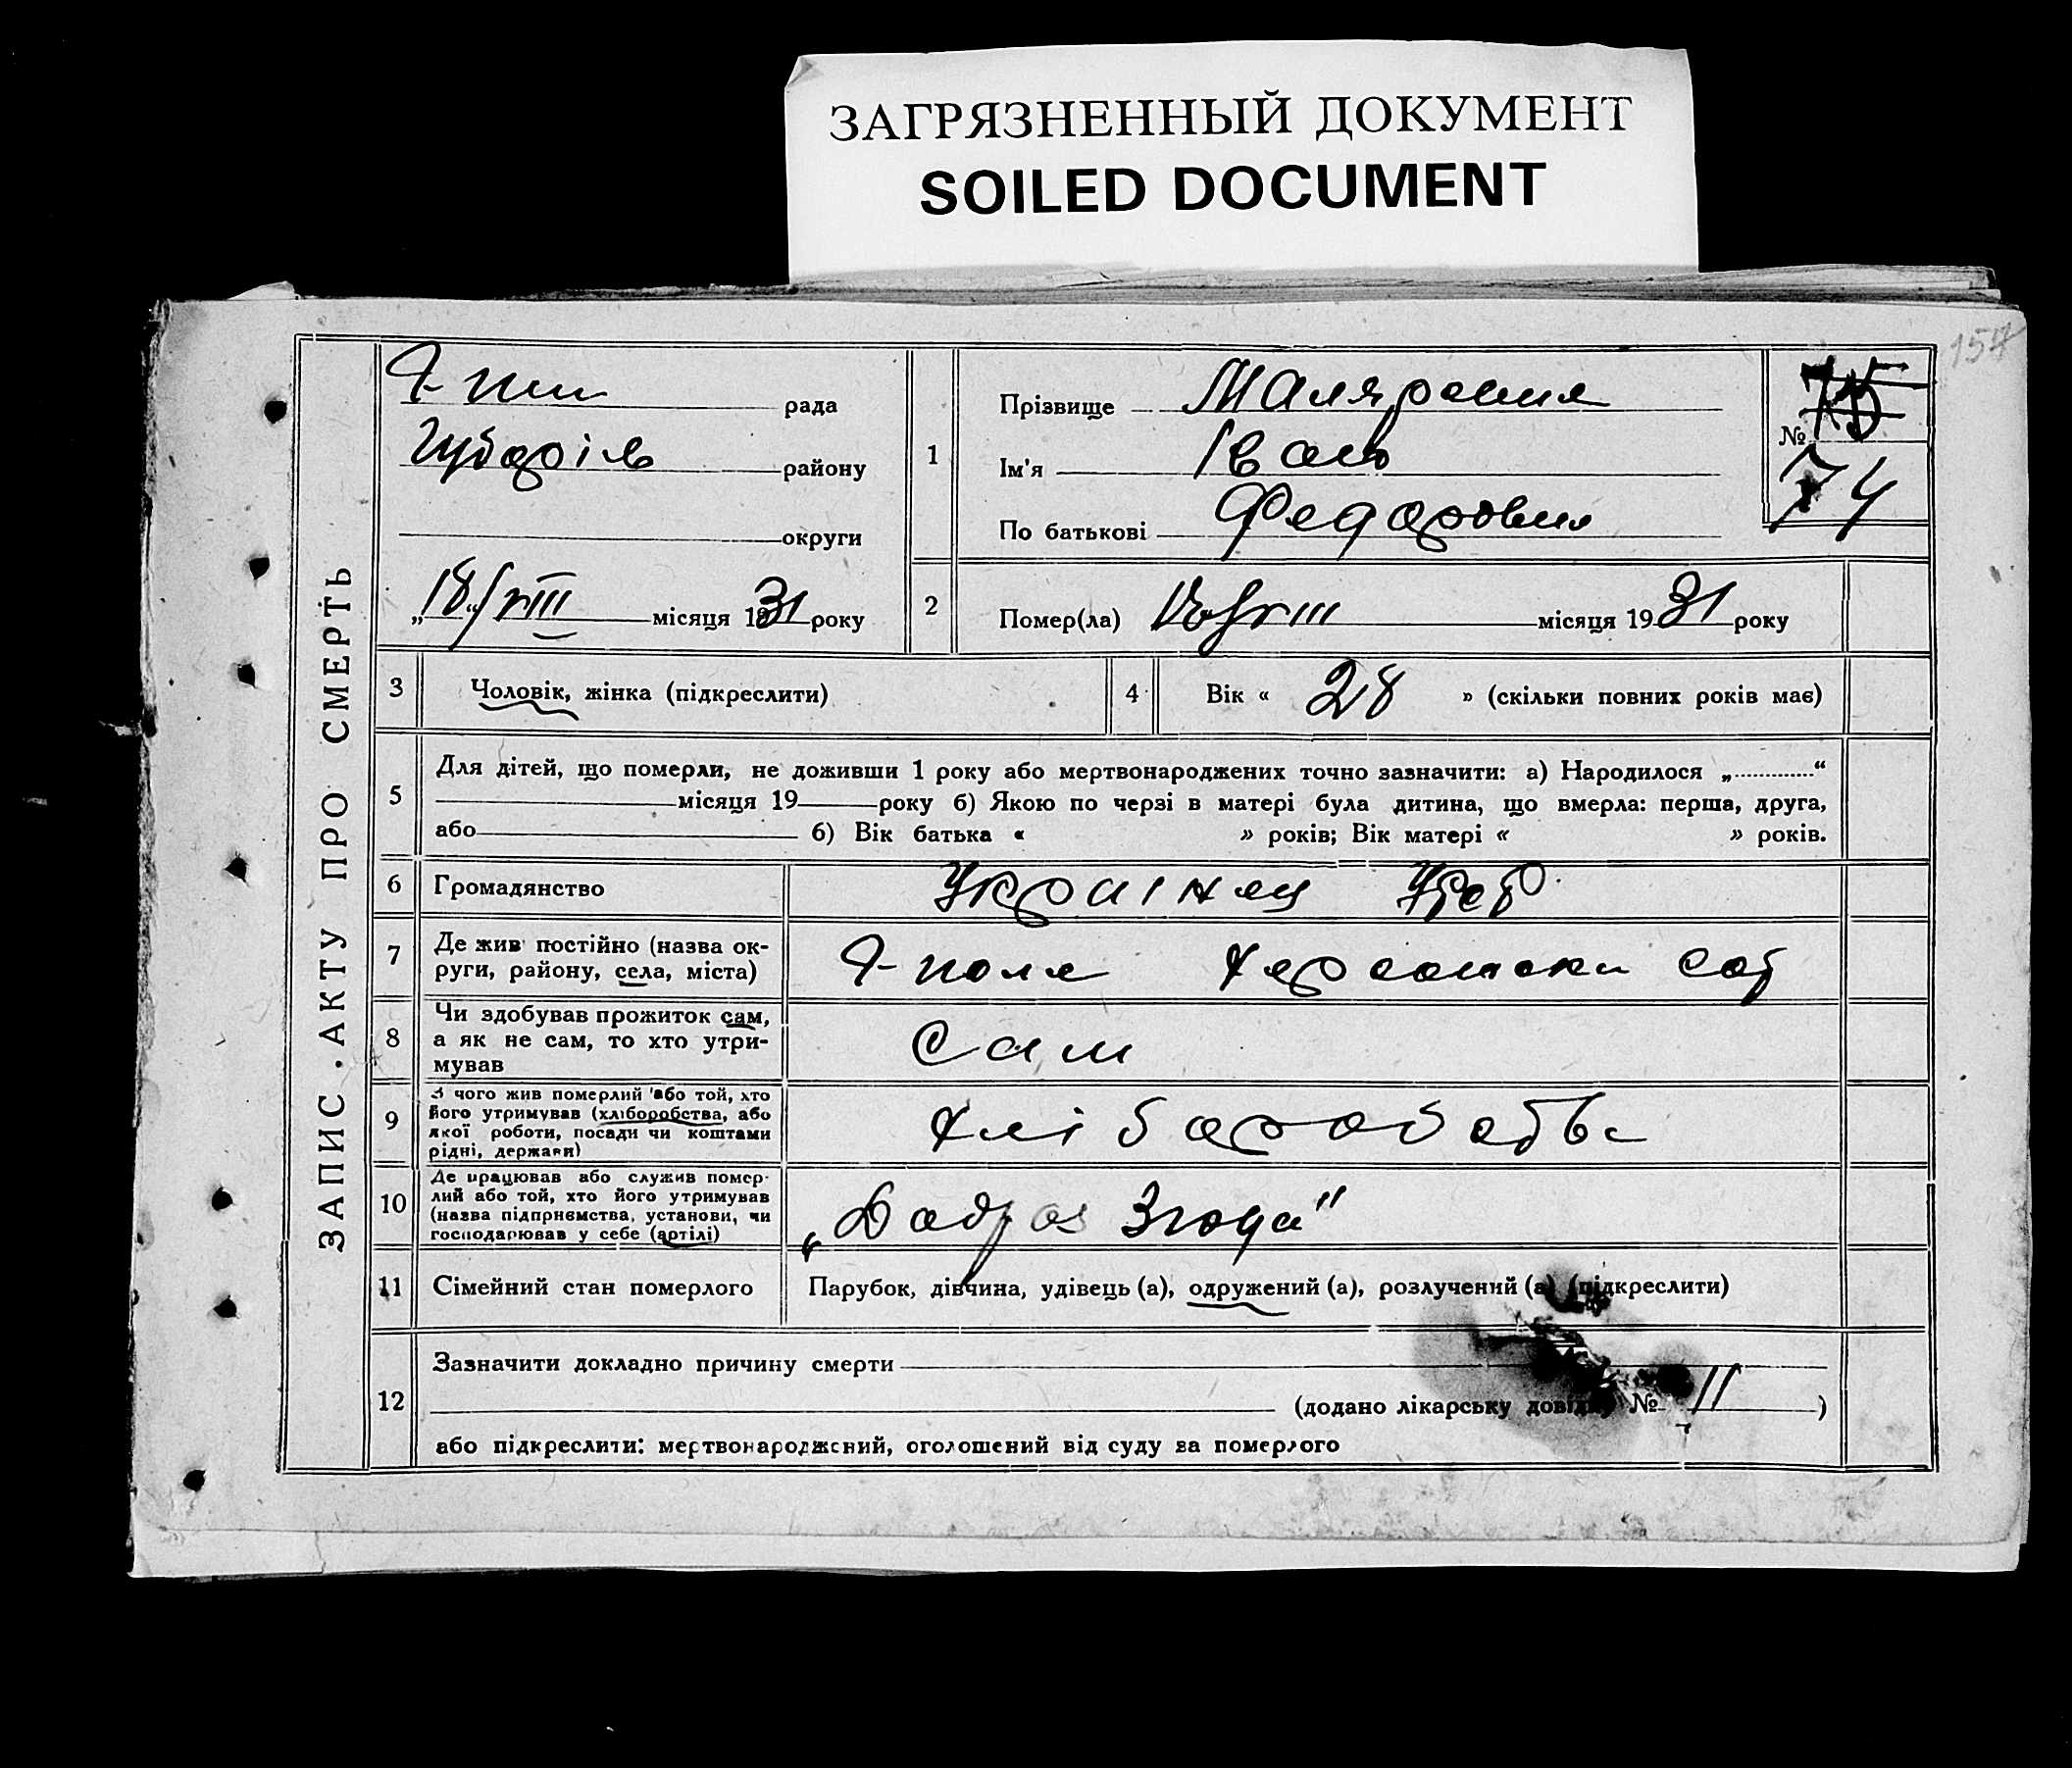 ЗАГРЯЗНЕННЫЙ ДОКУМЕНТ
SOILED DOCUMENT
154
ЗАПИС АКТУ ПРО СМЕРТЬ
рада
району
округи
„18“ VIII місяця 1931 року
1
Прізвище Маляренко
Ім'я Іван
По батькові Федорович
№ 75
74
2
Помер(ла) VIII місяця 1931 року
3 Чоловік, жінка (підкреслити)
4 Вік « 28 » (скільки повних років має)
5
Для дітей, що померли, не доживши 1 року або мертвонароджених точно зазначити: а) Народилося „ “
місяця 19 року б) Якою по черзі в матері була дитина, що вмерла: перша, друга,
або б) Вік батька « » років; Вік матері « » років.
6 Громадянство Украінец
7
Де жив постійно (назва ок-
руги, району, села, міста)
поле
8
Чи здобував прожиток сам,
а як не сам, то хто утри-
мував
Сам
9
З чого жив померлий або той, хто
його утримував (хліборобства, або
якої роботи, посади чи коштами
рідні, держави)
10
Де працював або служив помер-
лий або той, хто його утримував
(назва підприємства, установи, чи
господарював у себе (артілі)
Згода"
11 Сімейний стан померлого Парубок, дівчина, удівець (а), одружений (а), розлучений (а) (підкреслити)
12
Зазначити докладно причину смерти
(додано лікарську довідку № 11 )
або підкреслити: мертвонароджений, оголошений від суду за померлого